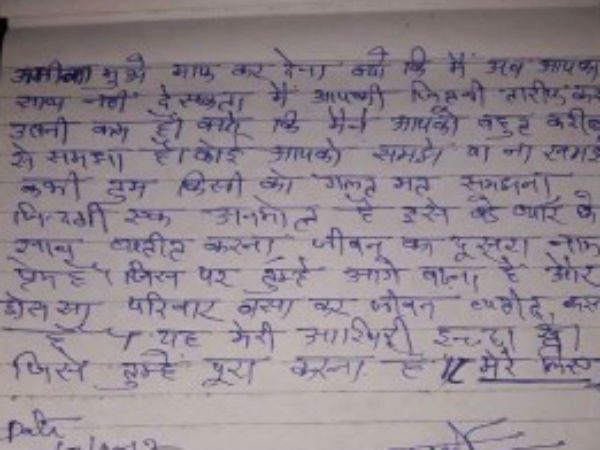 मुझे माफ कर देना क्यों कि मैं अब आपका
साथ नहीं दे सकता मैं आपकी जितनी तारीफ करू
उतनी कम है। क्यों कि मैंने आपको बहुत करीब
से समझा है। कोई आपको समझे या ना समझे
कभी तुम किसी को गलत मत समझना
जिन्दगी एक अनमोल है इसे बडे प्यार के
साथ व्यतीत करना जीवन का दूसरा नाम
प्रेम है। जिस पर तुम्हे आगे बढना है और
छोटा सा परिवार बसा कर जीवन व्यतीत करना
है। यह मेरी आखिरी इच्छा है।
जिसे तुम्हें पूरा करना है॥ मेरे लिए
Date